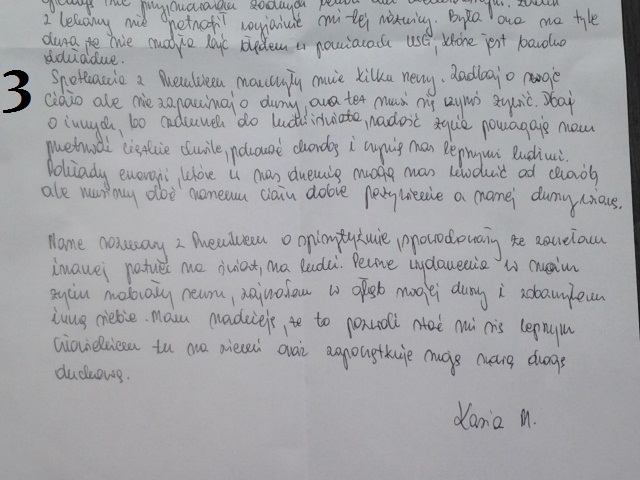 z lekarzy nie potrafił wyjaśnić mi tej różnicy. Była ona na tyle
duża że nie mogła być błędem w pomiarach USG, które jest bardzo
dokładne.
3
Spotkania z Przemkiem nauczyły mnie kilku rzeczy. Zadbaj o swoje
ciało ale nie zapominaj o duszy, ona też musi się czymś żywić. Dbaj
o innych, bo szacunek do ludzi i świata, radość życia pomagają nam
przetrwać ciężkie chwile, pokonać chorobę i czynią nas lepszymi ludźmi.
Pokłady energii, które w nas drzemią mogą nas uwolnić od chorób
ale musimy dać naszemu ciału dobre pożywienie a naszej duszy wiarę.
Nasze rozmowy z Przemkiem o spirytyzmie, spowodowały że zaczęłam
inaczej patrzeć na świat, na ludzi. Pewne wydarzenia w moim
życiu nabrały sensu, zajrzałam w głąb mojej duszy i zobaczyłam
inną siebie. Mam nadzieję, że to pozwoli stać mi się lepszym
człowiekiem tu na ziemi oraz zapoczątkuje moją nową drogę
duchową.
Kasia M.